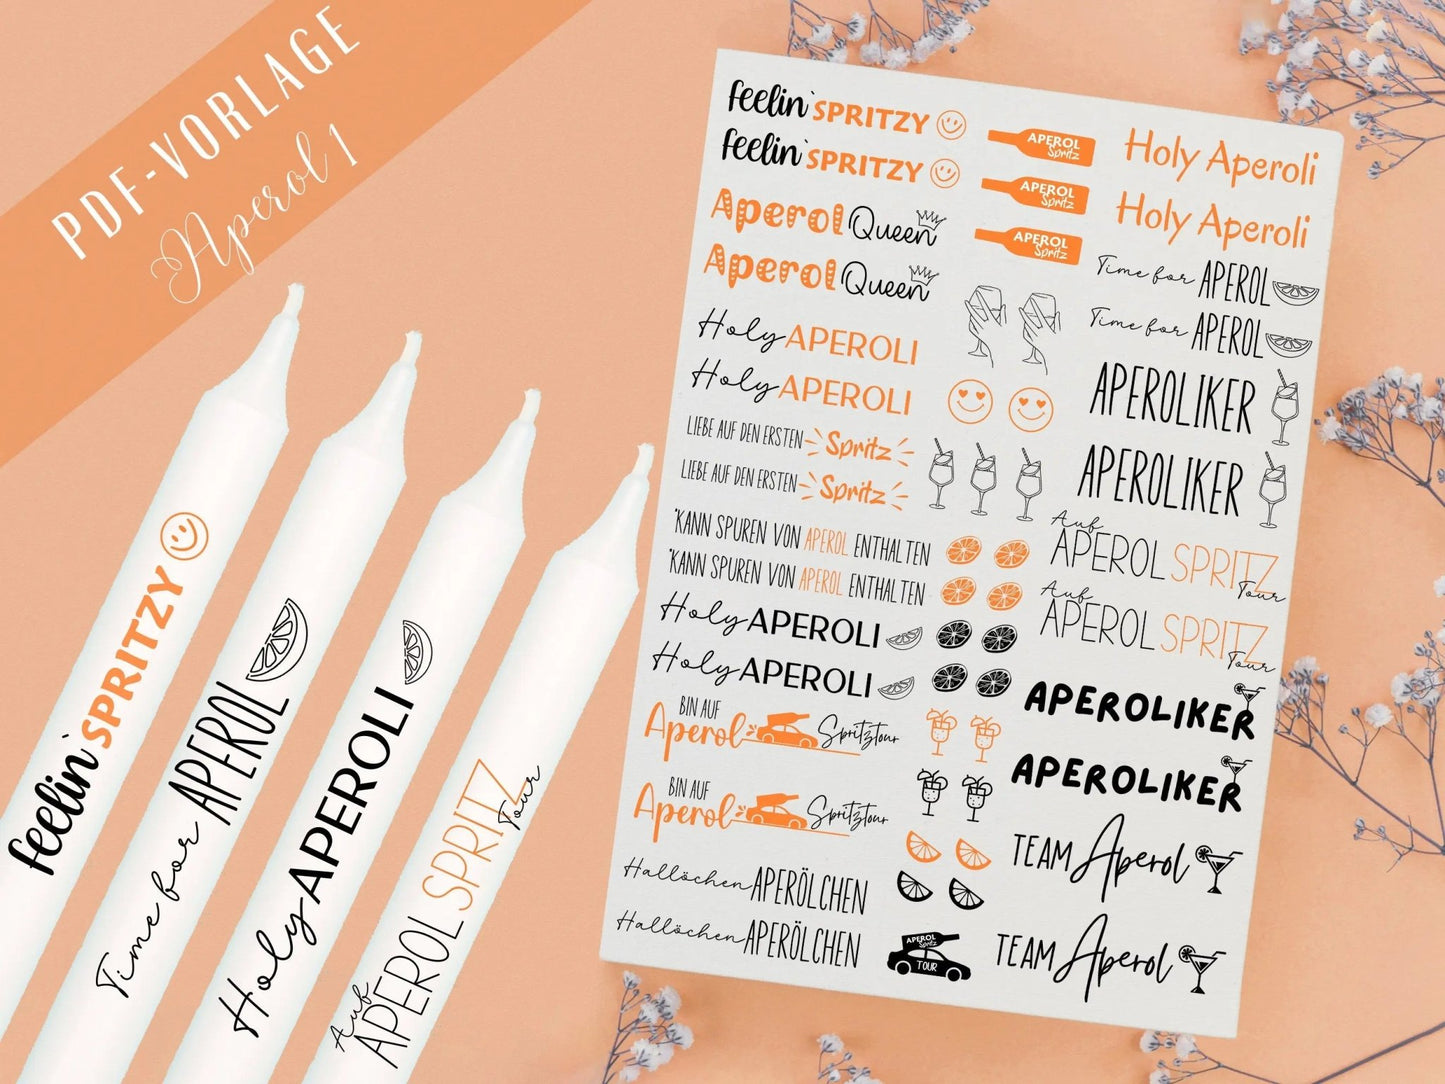 PDF-VORLAGE
Aperol 1
feelin' SPRITZY
Time for APEROL
Holy APEROLI
Auf
APEROL SPRITZ
Tour
feelin' SPRITZY
feelin' SPRITZY
Aperol Queen
Aperol Queen
Holy APEROLI
Holy APEROLI
LIEBE AUF DEN ERSTEN Spritz
LIEBE AUF DEN ERSTEN Spritz
*KANN SPUREN VON APEROL ENTHALTEN
*KANN SPUREN VON APEROL ENTHALTEN
Holy APEROLI
Holy APEROLI
BIN AUF
Aperol Spritztour
BIN AUF
Aperol Spritztour
Hallöchen APERÖLCHEN
Hallöchen APERÖLCHEN
APEROL
Spritz
APEROL
Spritz
APEROL
Spritz
APEROL
Spritz
TOUR
Holy Aperoli
Holy Aperoli
Time for APEROL
Time for APEROL
APEROLIKER
APEROLIKER
Auf
APEROL SPRITZ
Tour
Auf
APEROL SPRITZ
Tour
APEROLIKER
APEROLIKER
TEAM Aperol
TEAM Aperol